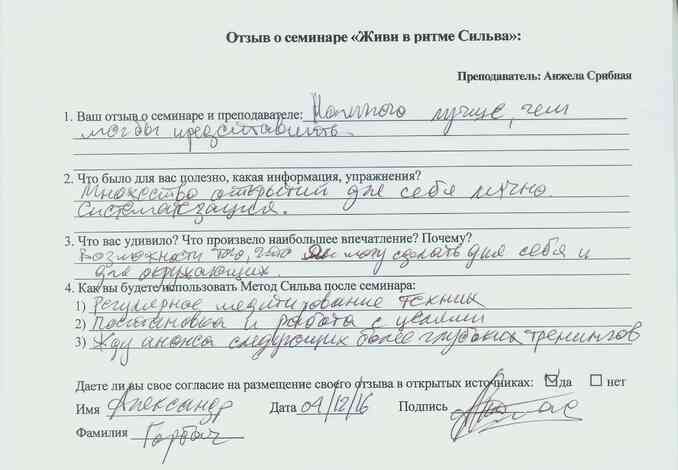 Отзыв о семинаре «Живи в ритме Сильва»:
Преподаватель: Анжела Срибная
1. Ваш отзыв о семинаре и преподавателе: Намного лучше, чем
мог бы представить.
2. Что было для вас полезно, какая информация, упражнения?
Множество открытий для себя лично.
Систематизация.
3. Что вас удивило? Что произвело наибольшее впечатление? Почему?
Возможности того, что я могу сделать для себя и
для окружающих.
4. Как вы будете использовать Метод Сильва после семинара:
1) Регулярное медитирование техник
2) Постановка и работа с целями
3) Жду анонса следующих более глубоких тренингов
Даете ли вы свое согласие на размещение своего отзыва в открытых источниках: да нет
Имя Александр Дата 04/12/16 Подпись
Фамилия Горбач